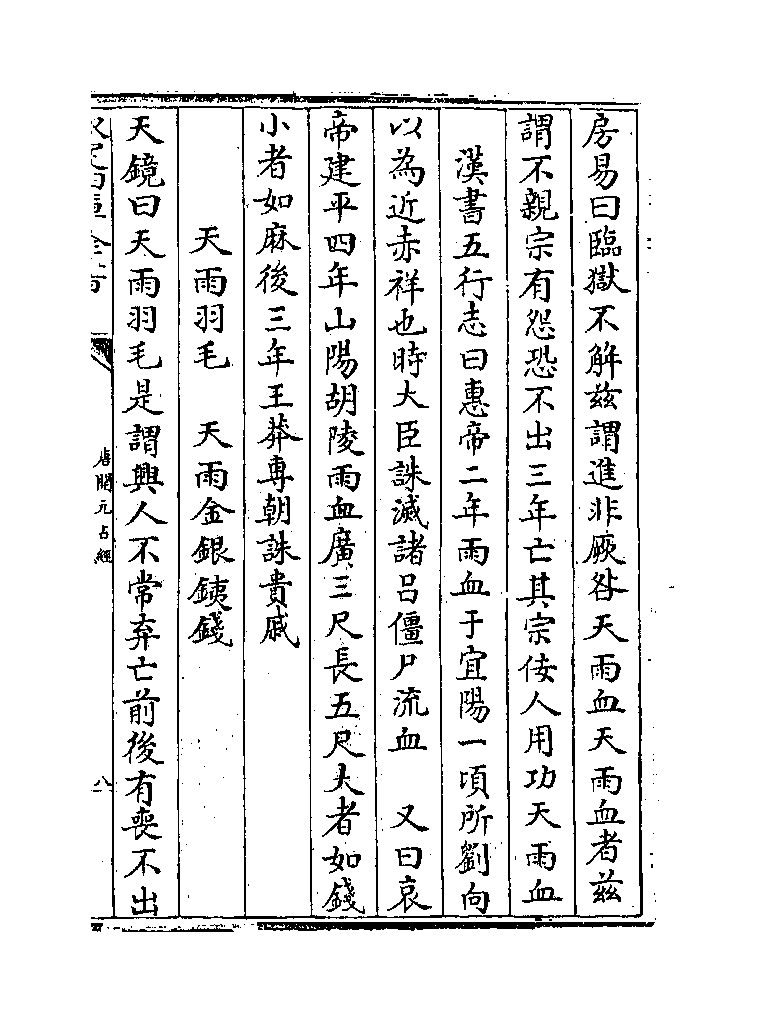 房易曰臨獄不解茲謂進非厥咎天雨血天雨血者茲
謂不親宗有怨恐不出三年亡其宗佞人用功天雨血
漢書五行志曰惠帝二年雨血于宜陽一頃所劉向
以為近赤祥也時大臣誅滅諸呂僵尸流血　又曰哀
帝建平四年山陽胡陵雨血廣三尺長五尺大者如錢
小者如麻後三年王莽専朝誅貴戚
天雨羽毛　天雨金銀銕錢
天鏡曰天雨羽毛是謂興人不常弃亡前後有喪不出
唐開元占經
八